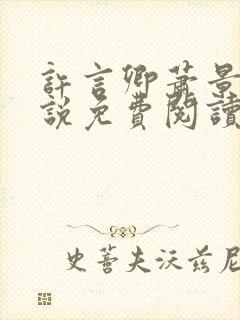 許言卿蕭景
説免費閱讀
史蒈夫沃兹尼